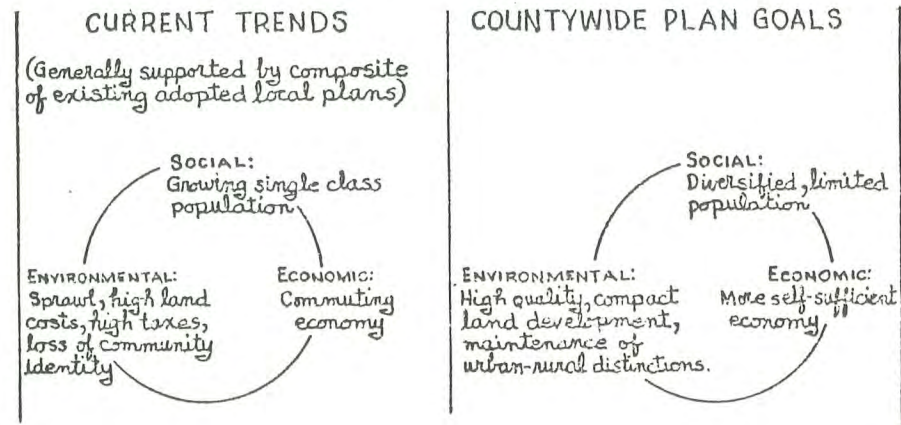 CURRENT TRENDS
(Generally supported by composite
of existing adopted local plans)
SOCIAL:
Growing single class
population
ENVIRONMENTAL:
Sprawl, high land
costs, high taxes,
loss of community
identity
ECONOMIC:
Commuting
economy
COUNTYWIDE PLAN GOALS
SOCIAL:
Diversified, limited
population
ENVIRONMENTAL:
High quality, compact
land development,
maintenance of
urban-rural distinctions.
ECONOMIC:
More self-sufficient
economy